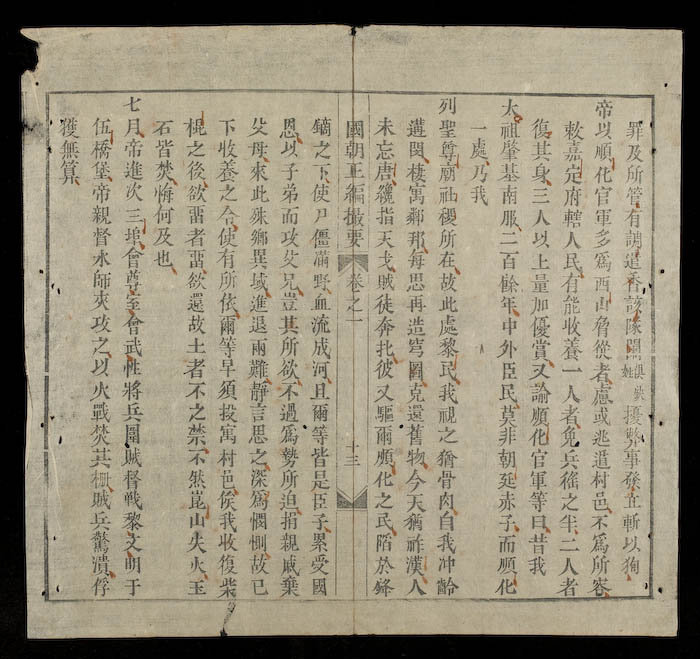 罪及所管有調遣香該隊闘俱缺姓擾獘事發立斬以狥
帝以順化官軍多爲西山脅從者慮或逃遁村邑不爲所容
敕嘉定府轄人民有能收養一人者免兵徭之半二人者
復其身三人以上量加優賞又諭順化官軍等曰昔我
太祖肇基南服二百餘年中外臣民莫非朝廷赤子而順化
一處乃我
列聖尊廟社稷所在故此處黎民我視之猶骨肉自我冲齡
遘閔棲寓鄰邦每思再造穹圖克還舊物今天猶祚漢人
未忘唐纔指天戈賊徒奔北彼又驅爾順化之民陌於鋒
國朝正編撮要
卷之一
十三
鏑之下使尸僵滿野血流成河且爾等皆是臣子累受國
恩以子弟而攻父兄豈其所欲不過爲勢所迫捐親戚棄
父母來此殊鄉異域進退兩難靜言思之深爲憫惻故已
下收養之令使有所依爾等早須投寓村邑俟我收復柴
棍之後欲畱者畱欲還故土者不之禁不然崑山失火玉
石皆焚悔何及也
七月帝進次三埠會尊室會武性將兵圍賊督戰黎文明于
伍橋堡帝親督水師夾攻之以火戰焚其柵賊兵驚潰俘
獲無算